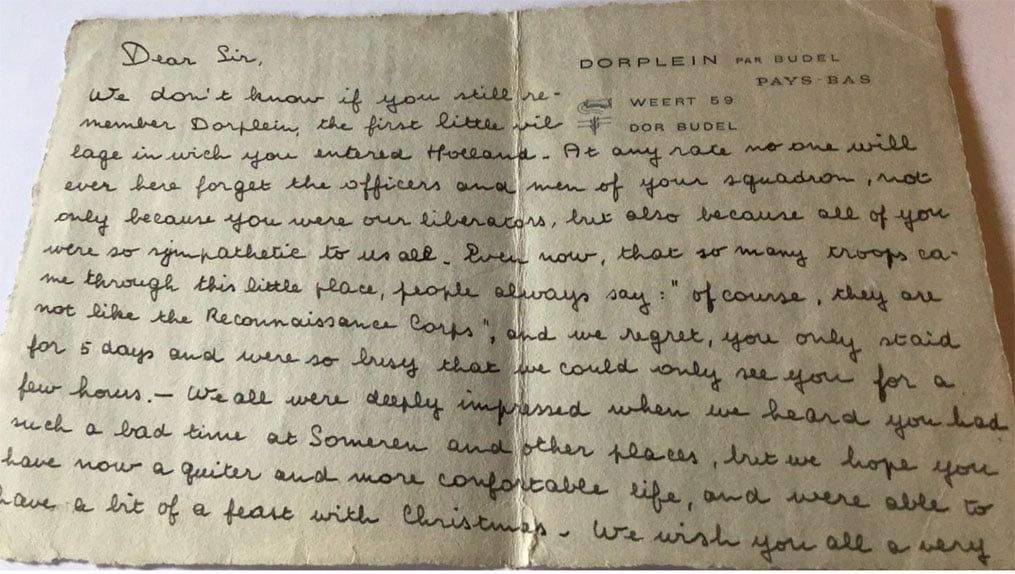 Dear Sir,
DORPLEIN PAR BUDEL
PAYS-BAS
WEERT 59
DOR BUDEL
We don't know if you still re-
member Dorplein, the first little vil
lage in wich you entered Holland. At any rate no one will
ever here forget the officers and men of your squadron, not
only because you were our liberators, but also because all of you
were so sympathetic to us all. Even now, that so many troops ca-
me through this little place, people always say: "of course, they are
not like the Reconnaissance Corps", and we regret, you only staid
for 5 days and were so busy that we could only see you for a
few hours. - We all were deeply impressed when we heard you had
such a bad time at Someren and other places, but we hope you
have now a quiter and more confortable life, and were able to
have a bit of a feast with Christmas. We wish you all a very